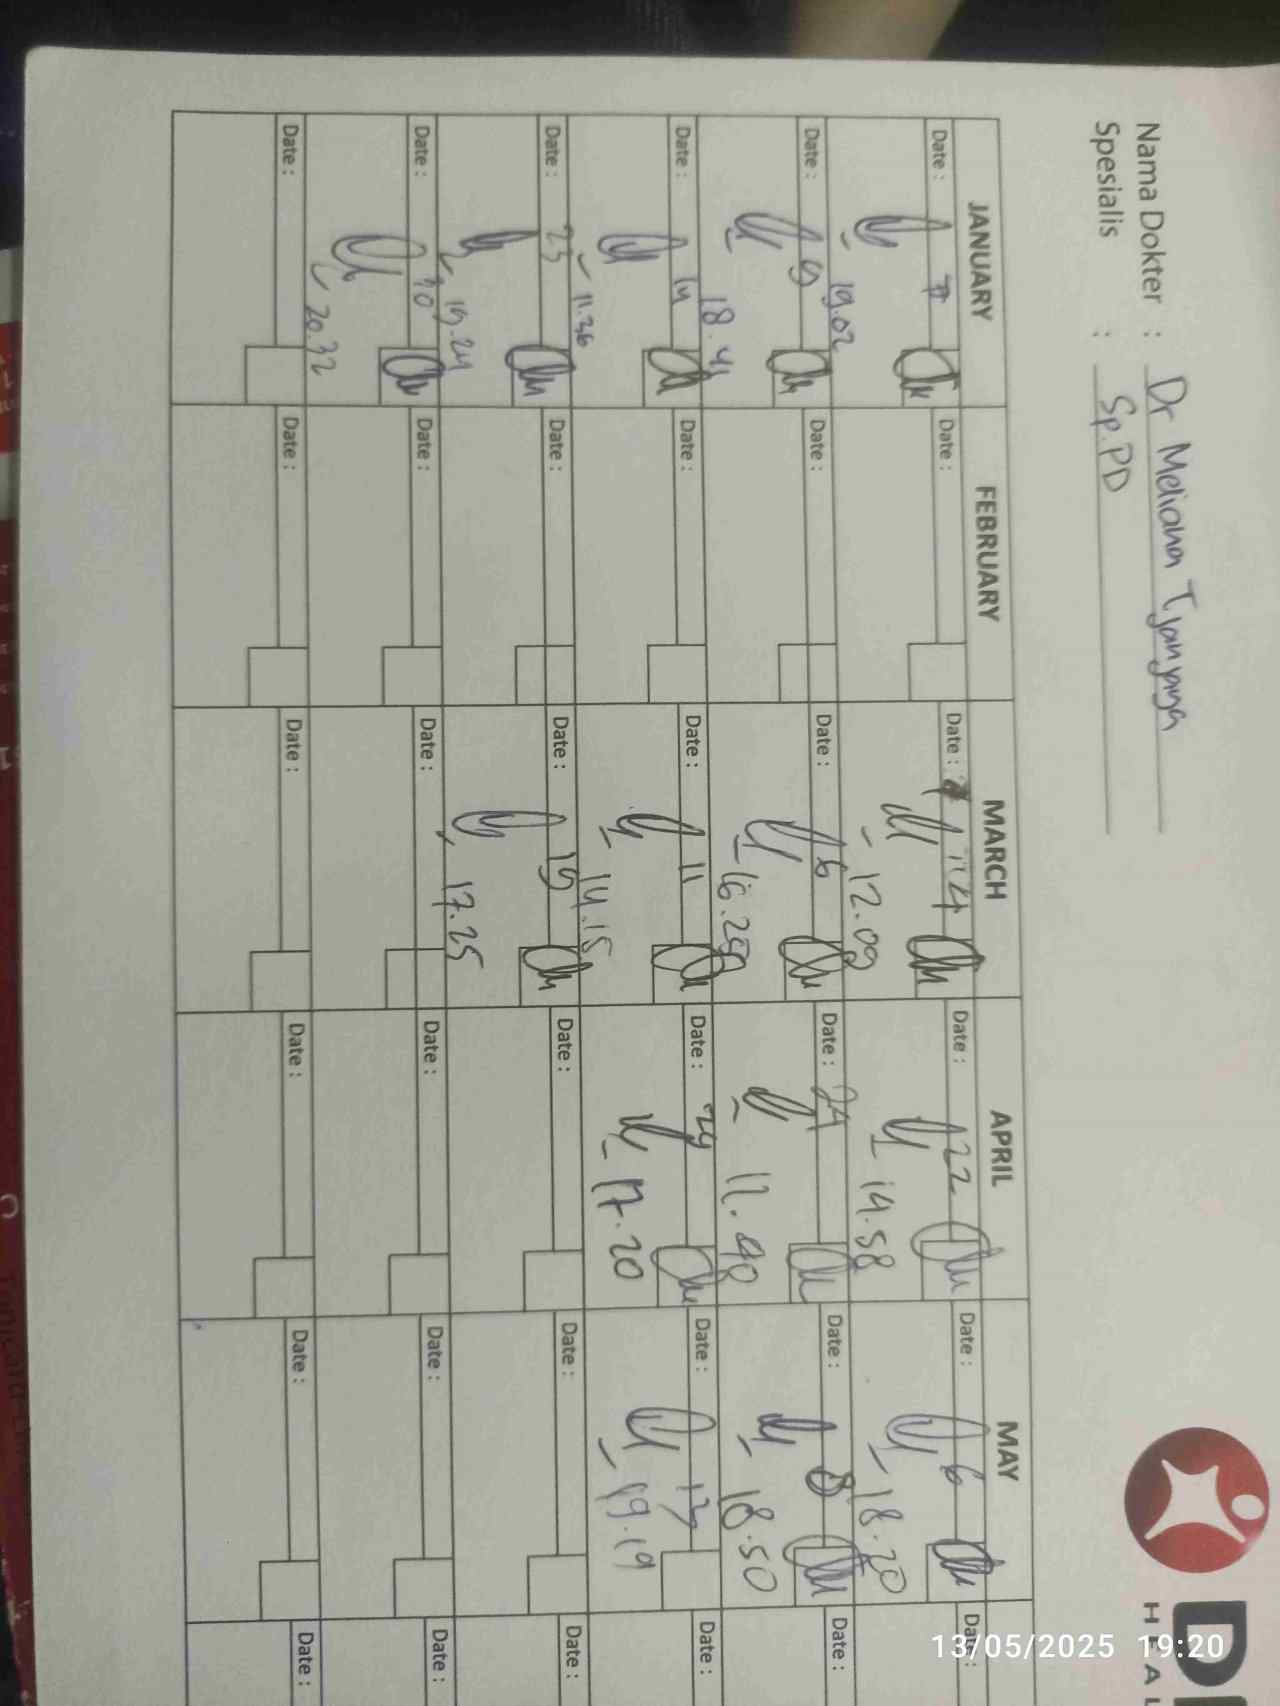 Nama Dokter : Dr Meliana Tjanyaya
Spesialis : Sp.PD
JANUARY FEBRUARY MARCH APRIL MAY
Date : 7 Date : Date : 4 Date : 22 Date : 6 Date :
19.02 12.09 14.58 18.20
Date : 9 Date : Date : 6 Date : 24 Date : 8 Date :
18.44 16.25 18.50
Date : 14 Date : Date : 11 Date : 29 Date : 13 Date :
11.36 14.15 17.20 19.19
Date : 23 Date : Date : 19 Date : Date : Date :
19.24 17.25
Date : 30 Date : Date : Date : Date : Date :
20.32
Date : Date : Date : Date : Date : Date :
13/05/2025 19:20